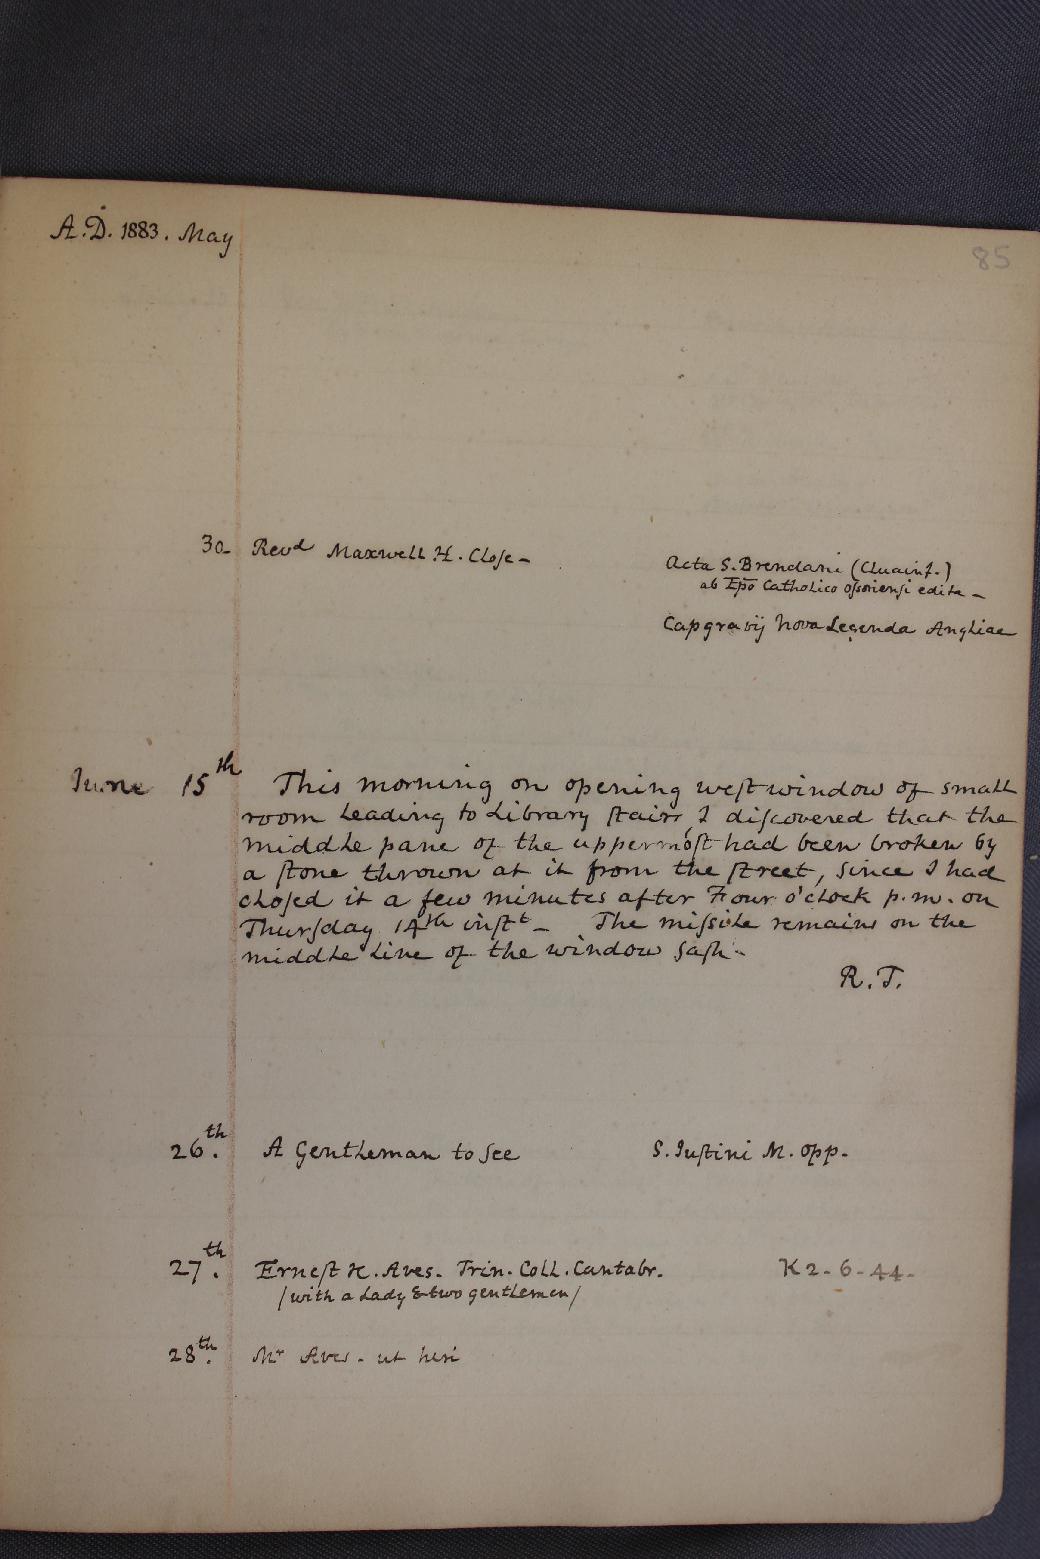 A.D. 1883. May
85
30 Revd Maxwell H. Close -
Acta S. Brendani (Cluainf.)
ab Epō Catholico oſſoriensi edita -
Capgravij Nova Legenda Angliae
June 15th This morning on opening weſt window of small
room leading to Library ſtairs, I diſcovered that the
middle pane of the uppermoſt had been broken by
a ſtone thrown at it from the ſtreet, since I had
cloſed it a few minutes after Four o'clock p.m. on
Thurſday 14th inſtt - The miſsile remains on the
middle line of the window saſh -
R. T.
26th. A Gentleman to ſee S. Iuſtini M. Opp.
27th. Erneſt H. Aves. Trin. Coll. Cantabr. K2-6-44-
/with a Lady & two gentlemen/
28th. Mr Aves - ut heri